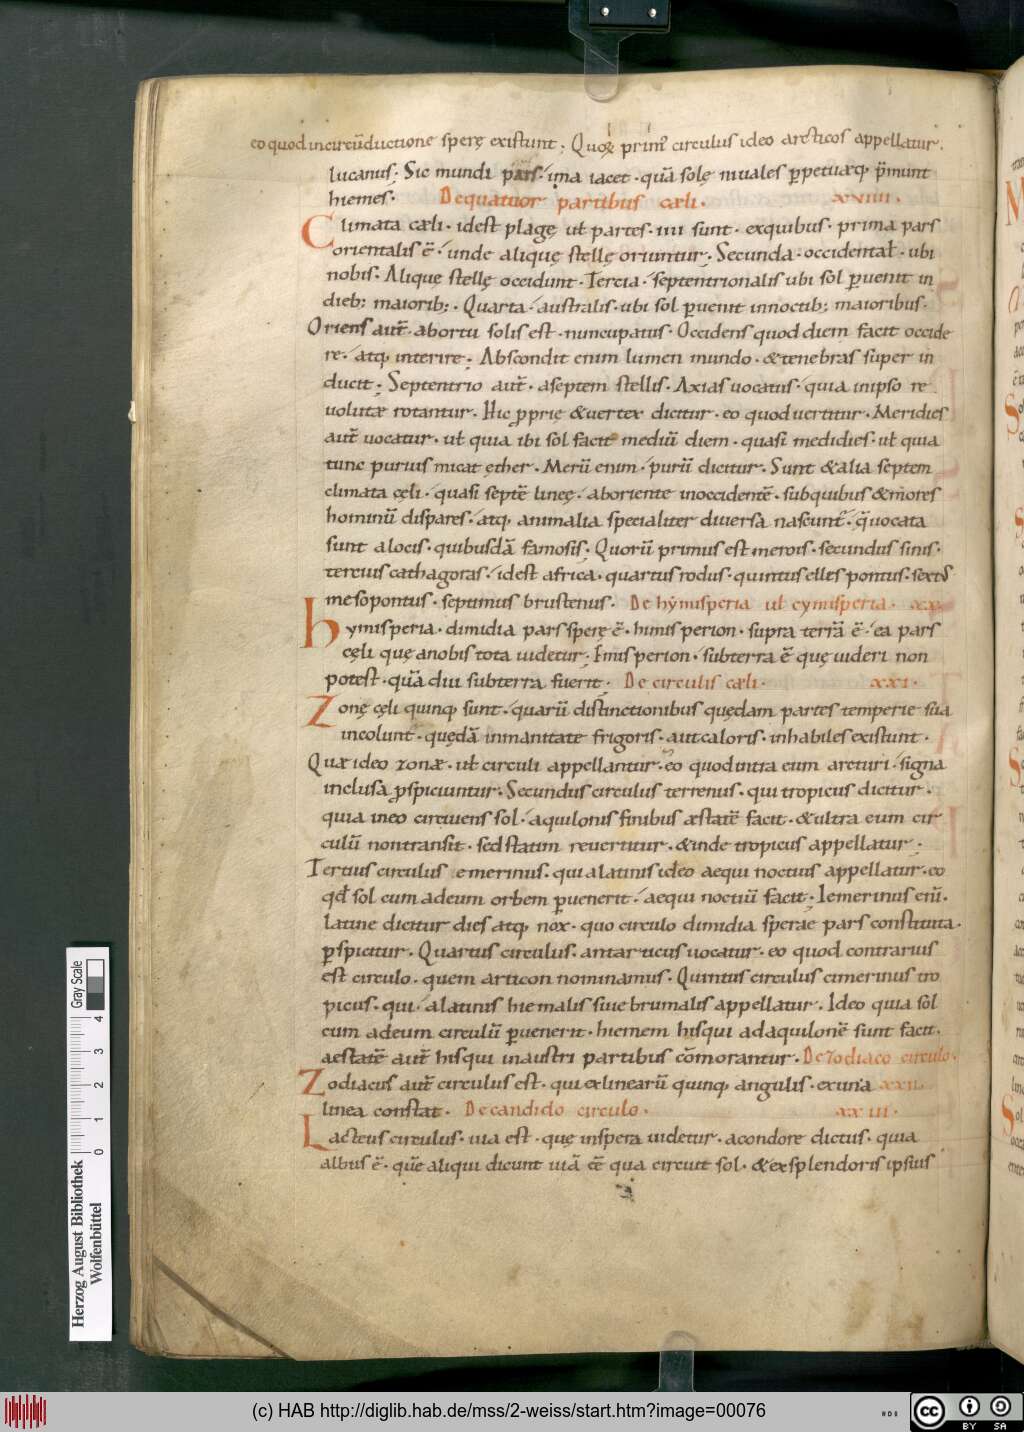 eo quod in circūductione sperę existunt; Quoꝝ prim᷒ circulus ideo arcticos appellatur.
lucanus. Sic mundi pars ima iacet. quā solę niuales ꝑpetuęq; p̄munt
hiemes. De quatuor partibus cæli. xviiii.
Climata cæli. id est plagę uł partes. iiii sunt. ex quibus. prima pars
orientalis ē. unde alique stellę oriuntur. Secunda. occidentał. ubi
nobis. Alique stellę occidunt. Tercia. septentrionalis ubi sol ꝑuenit in
dieb; maiorib;. Quarta. australis. ubi sol ꝑuenit in noctib; maioribus.
Oriens aut̄. abortu solis est. nuncupatus. Occidens quod diem facit occide
re. atq; interire; Abscondit enim lumen mundo. & tenebras super in
ducit; Septentrio aut̄. a septem stellis. Axias uocatus. quia in ipso re
uolutæ rotantur. Hic ꝓprię & uertex dicitur. eo quod uertitur. Meridies
aut̄ uocatur. uł quia ibi sol facit mediū diem. quasi medidies. uł quia
tunc purius micat ęther. Merū enim. purū dicitur. Sunt & alia septem
climata cęli. quasi septē lineę. ab oriente in occidentē. sub quibus & mores
hominū dispares. atq; animalia specialiter diuersa nascunt̄. quę uocata
sunt a locis. quibusdā famosis. Quorū primus est merois. secundus sinis.
tercius cathagoras. id est africa. quartus rodus. quintus ellespontus. sextus
mesopontus. septimus brustenus. De hẏmisperia uł cymisperia. xx.
hymisperia. dimidia pars sperę ē. himisperion. supra terrā ē. ea pars
cęli quę a nobis tota uidetur; Imisperion. sub terra ē quę uideri non
potest. quā diu sub terra fuerit. De circulis cæli. xxi.
Zonę cęli quinq; sunt. quarū distinctionibus quędam partes temperie sua
incolunt. quędā inmanitate frigoris. aut caloris. inhabiles existunt.
Quæ ideo zonæ. uł circuli appellantur. eo quod intra eum arcturi. signa
inclusa ꝓspiciuntur. Secundus circulus terrenus. qui tropicus dicitur.
quia in eo circuiens sol. aquilonis finibus æstatē facit. & ultra eum cir
culū non transit. sed statim reuertitur. & inde tropicus appellatur.
Tertius circulus emerinus. qui a latinis ideo aequi noctius appellatur. eo
qđ sol cum ad eum orbem ꝑuenerit. aequi noctiū facit. Iemerinus eni.
latine dicitur dies atq; nox. quo circulo dimidia sperae pars constituta.
ꝑspicitur. Quartus circulus. antarticus uocatur. eo quod contrarius
est circulo. quem articon nominamus. Quintus circulus cimerinus tro
picus. qui. a latinis hiemalis siue brumalis appellatur. Ideo quia sol
cum ad eum circulū ꝑuenerit. hiemem hisqui ad aquilonē sunt facit.
aestatē aut̄ hisqui in austri partibus cōmorantur. De zodiaco circulo.
Zodiacus aut̄ circulus est. qui ex linearū quinq; angulis. ex una xxii.
linea constat. De candido circulo. xxiii.
Lacteus circulus. uia est. que in spera uidetur. a condore dictus. quia
albus ē. quē aliqui dicunt uiā ēē qua circuit sol. & ex splendoris ipsius
Herzog August Bibliothek
Wolfenbüttel
Gray Scale
0 1 2 3 4
(c) HAB http://diglib.hab.de/mss/2-weiss/start.htm?image=00076
cc BY SA